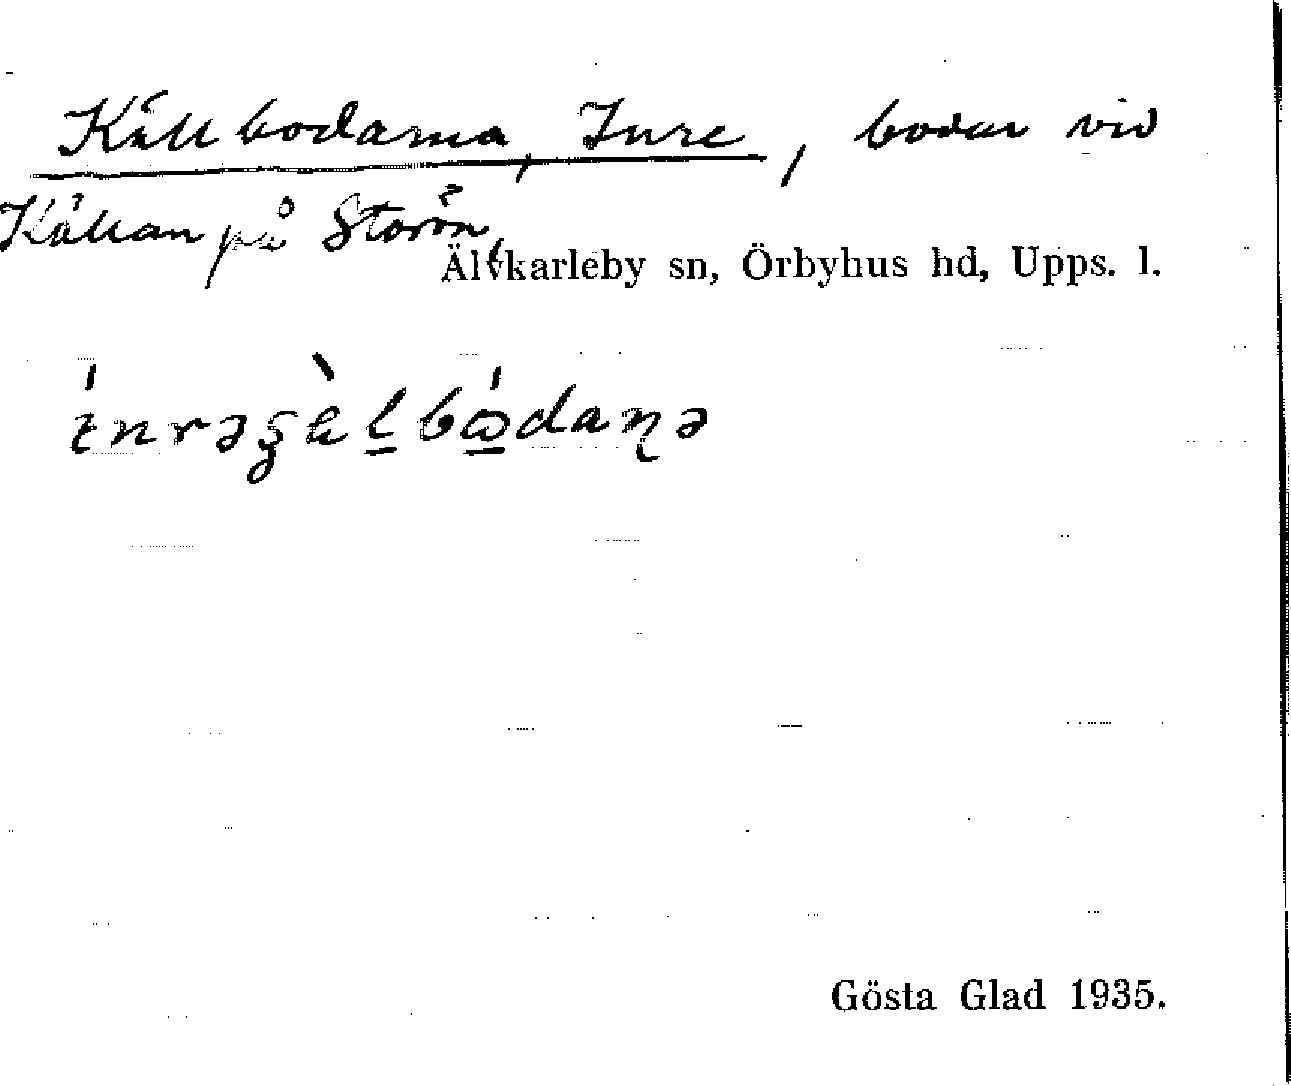 Källbodarna, Inre, bodar vid
Källan på Storön,
Älvkarleby sn, Örbyhus hd, Upps. l.
Gösta Glad 1935.